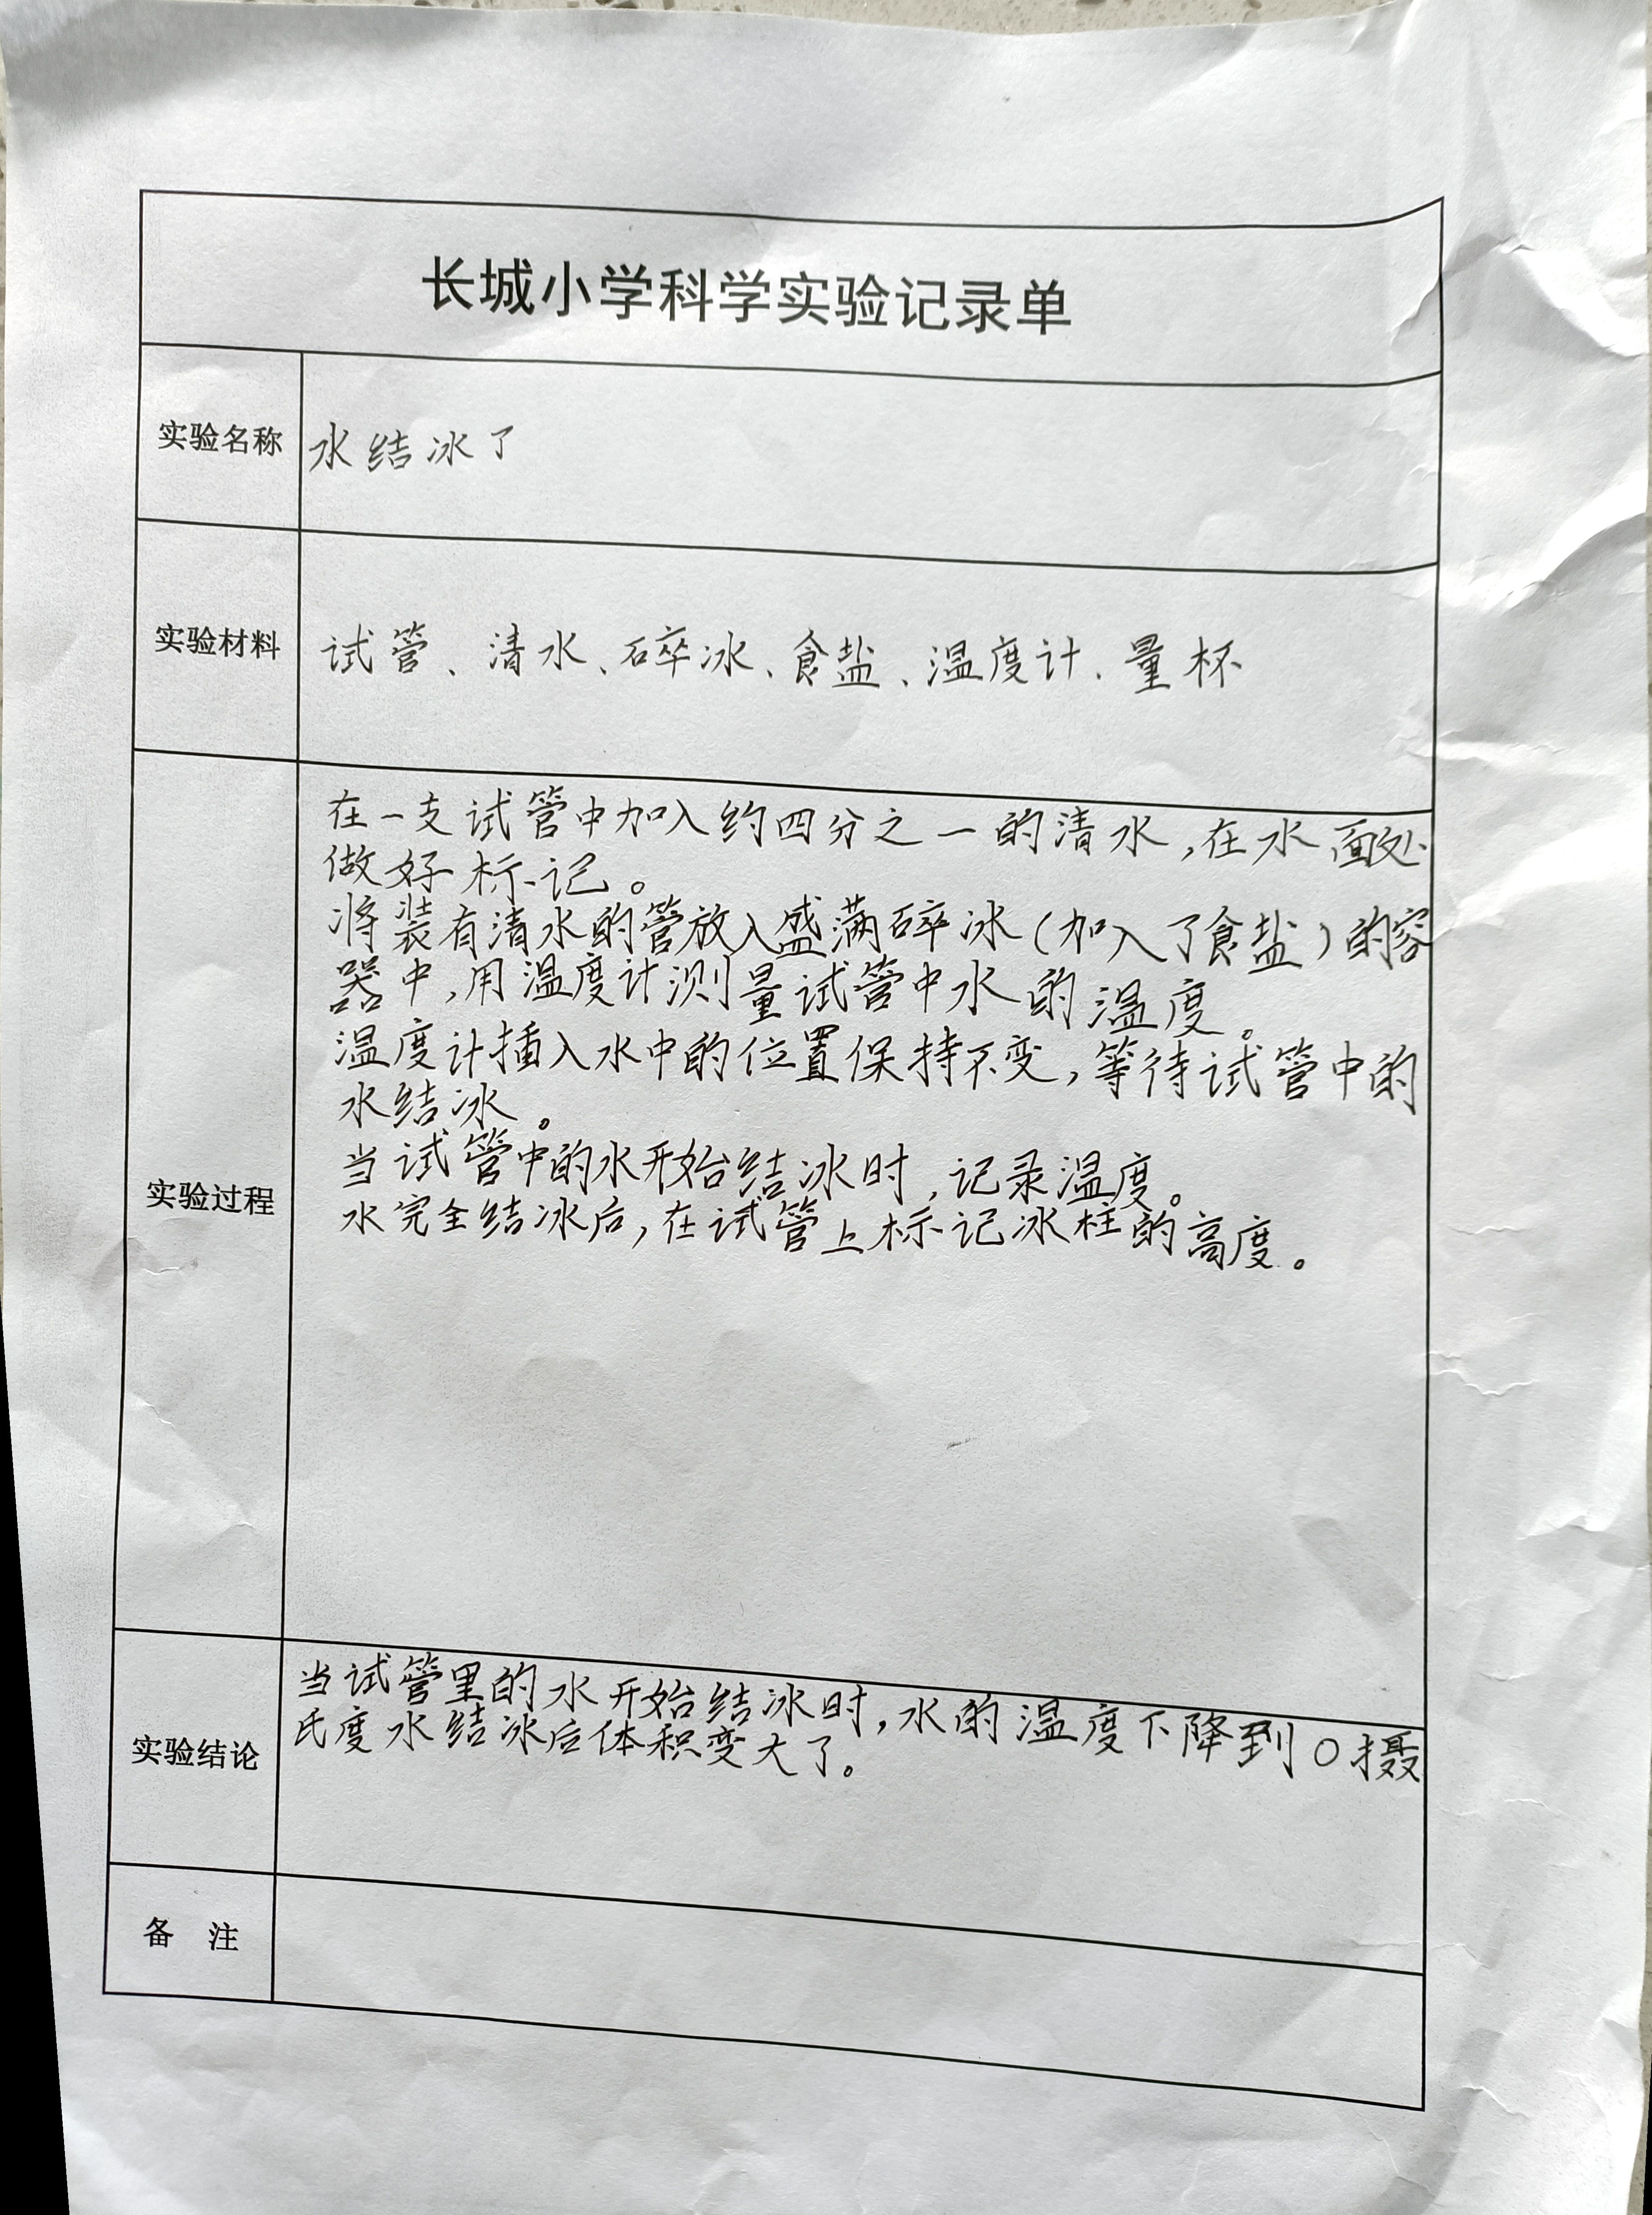 长城小学科学实验记录单
实验名称 水结冰了
实验材料 试管、清水、碎冰、食盐、温度计、量杯
实验过程
在一支试管中加入约四分之一的清水,在水面处
做好标记。
将装有清水的管放入盛满碎冰(加入了食盐)的容
器中,用温度计测量试管中水的温度。
温度计插入水中的位置保持不变,等待试管中的
水结冰。
当试管中的水开始结冰时,记录温度。
水完全结冰后,在试管上标记冰柱的高度。
实验结论
当试管里的水开始结冰时,水的温度下降到0摄
氏度水结冰后体积变大了。
备 注